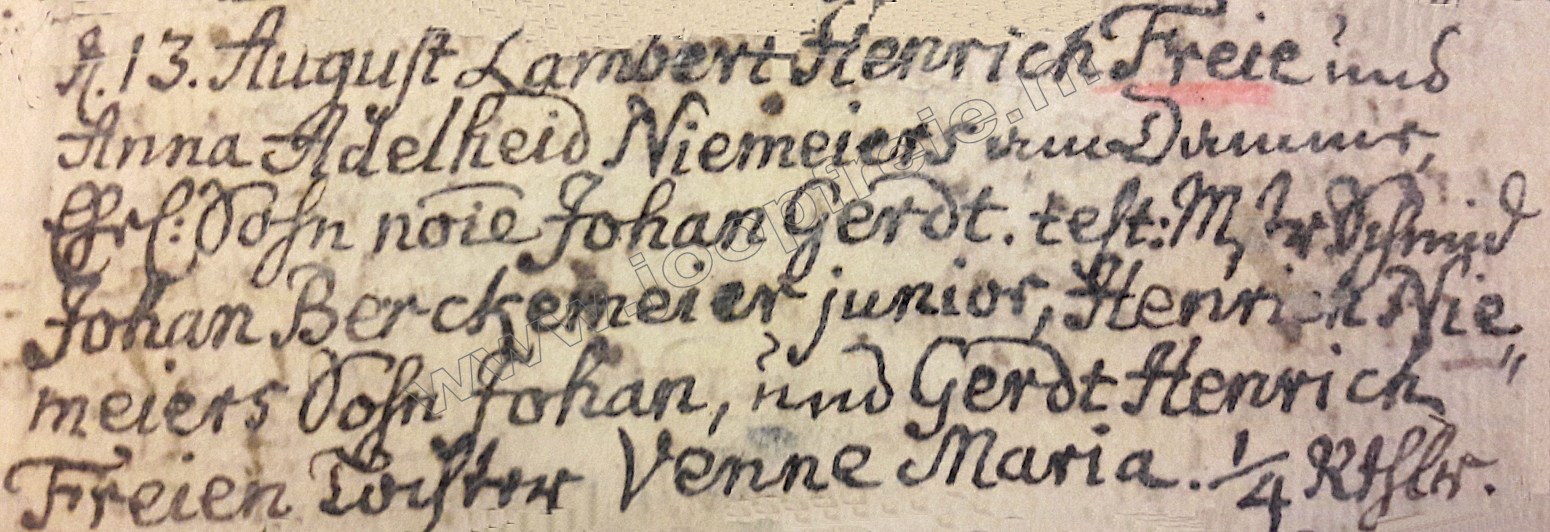 d. 13. August Lambert Henrich Freie und
Anna Adelheid Niemeiers am Damme,
Ehrl: Sohn noie Johan Gerdt. test: Mstr Schmid
Johan Berckemeier junior, Henrich Nie„
meiers Sohn Johan, und Gerdt Henrich
Freien Tochter Venne Maria. 1/4 Rthlr.
www.joopfreie.nl